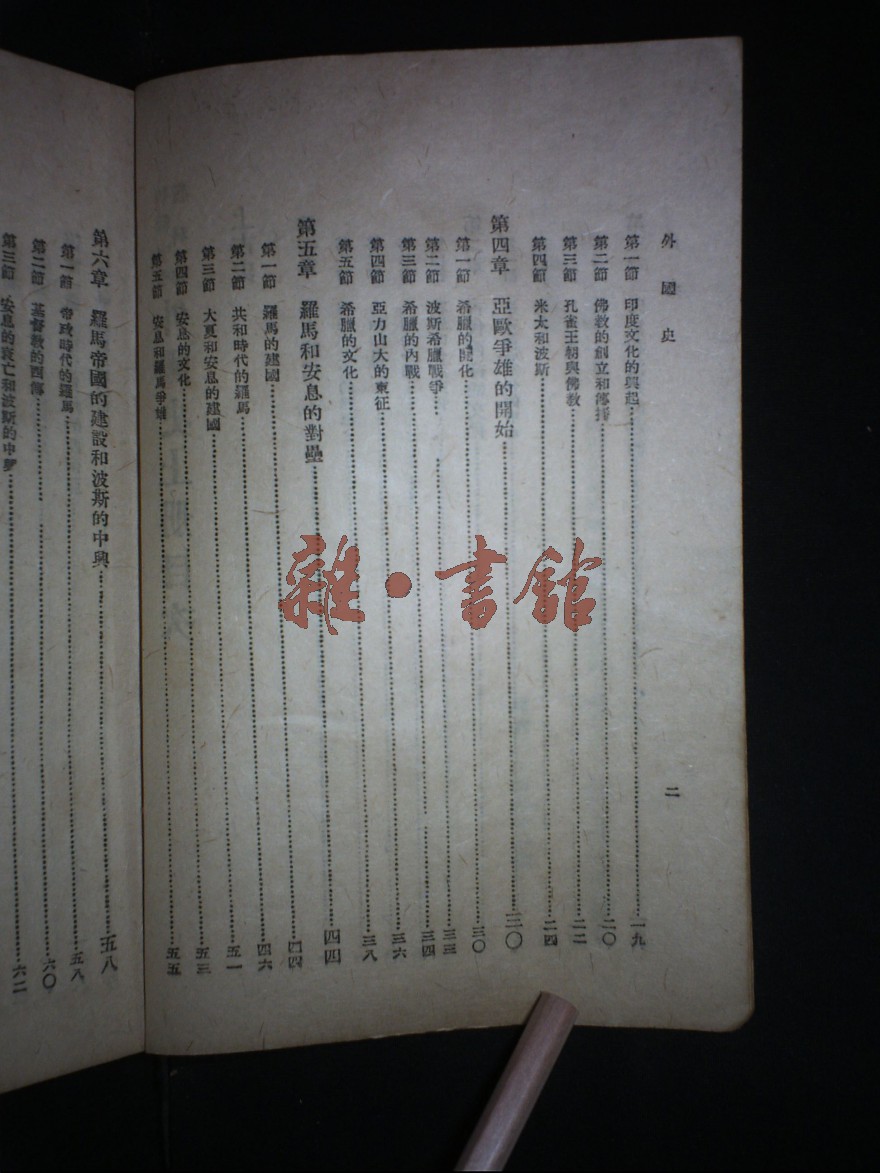 外國史
二
第一節 印度文化的興起 一九
第二節 佛教的創立和傳播 二〇
第三節 孔雀王朝與佛教 二二
第四節 米太和波斯 二四
第四章 亞歐爭雄的開始 三〇
第一節 希臘的開化 三〇
第二節 波斯希臘戰爭 三三
第三節 希臘的內戰 三四
第四節 亞力山大的東征 三六
第五節 希臘的文化 三八
第五章 羅馬和安息的對壘 四四
第一節 羅馬的建國 四四
第二節 共和時代的羅馬 四六
第三節 大夏和安息的建國 五一
第四節 安息的文化 五三
第五節 安息和羅馬爭雄 五五
第六章 羅馬帝國的建設和波斯的中興 五八
第一節 帝政時代的羅馬 五八
第二節 基督教的西傳 六〇
第三節 安息的衰亡和波斯的中興 六二
雜·書館